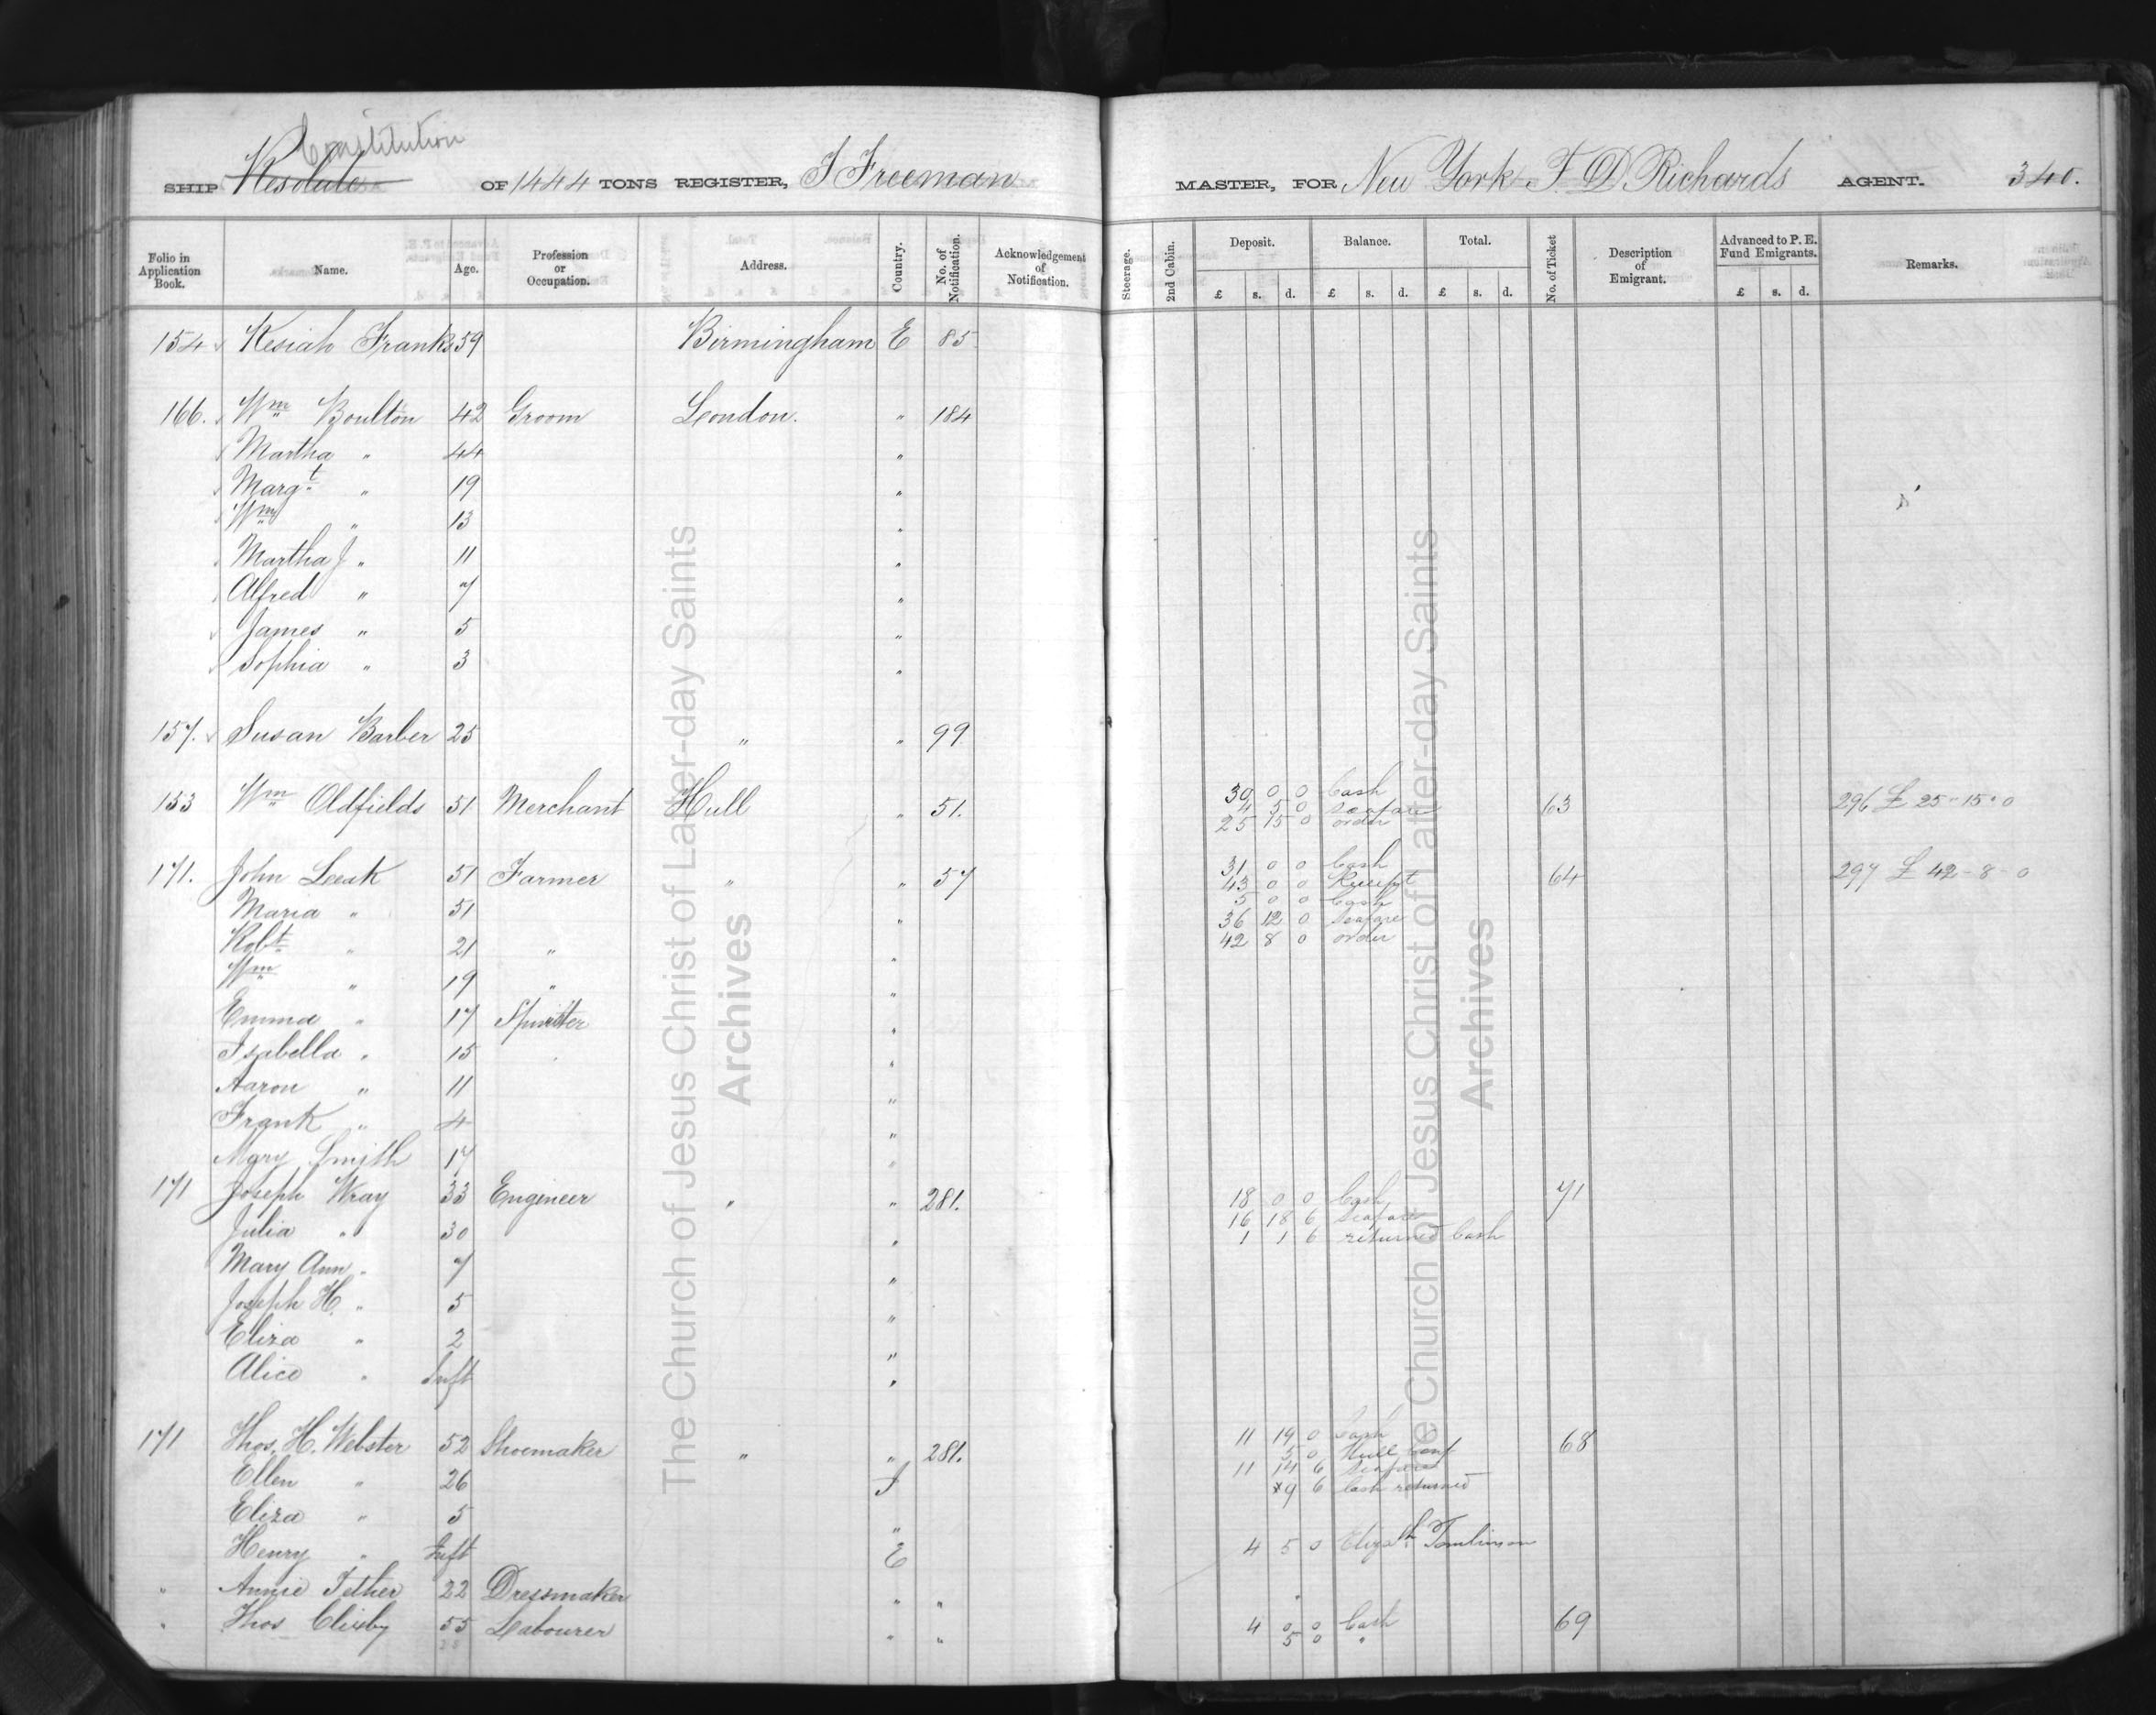 Constitution
SHIP Resolute OF 1444 TONS REGISTER, J Freeman MASTER, FOR New York F. D Richards AGENT. 340.
Folio in Application Book. Name. Age. Profession or Occupation. Address. Country. No. of Notification. Acknowledgement of Notification. Steerage. 2nd Cabin. Deposit. Balance. Total. No. of Ticket Description of Emigrant. Advanced to P. E. Fund Emigrants. Remarks.
£ s. d. £ s. d. £ s. d. £ s. d.
154 Kesiah Franks 59 Birmingham E 85
166. Wm Boulton 42 Groom London. " 184
Martha " 44 "
Margt " 19 "
Wm " 13 "
Martha J " 11 "
Alfred " 7 "
James " 5 "
Sophia " 3 "
157. Susan Barber 25 " " 99
153 Wm Oldfields 51 Merchant Hull " 51. 30 0 0 Cash 63 296 £ 25-15-0
4 5 0 Seafare
25 15 0 order
171. John Leak 51 Farmer " " 57 31 0 0 Cash 64 297 £ 42-8-0
43 0 0 Receipt
Maria " 51 " 5 0 0 Cash
36 12 0 Seafare
Robt " 21 " " 42 8 0 order
Wm " 19 " "
Emma " 17 Spinster "
Isabella " 15 "
Aaron " 11 "
Frank " 4 "
Mary Smith 17 "
171 Joseph Wray 33 Engineer " " 281. 18 0 0 Cash 71
16 18 6 Seafare
Julia " 30 " 1 1 6 returned Cash
Mary Ann " 7 "
Joseph H. " 5 "
Eliza " 2 "
Alice " Inft "
171 Thos. H. Webster 52 Shoemaker " " 281. 11 19 0 Cash 68
5 0 Hull Conf
Ellen " 26 I 11 14 6 Seafare
9 6 Cash returned
Eliza " 5 "
Henry " Inft E 4 5 0 Elizth Tomlinson
" Annie Tether 22 Dressmaker " "
" Thos Clixby 55 Labourer " " 4 0 0 Cash 69
5 0 "
The Church of Jesus Christ of Latter-day Saints
Archives
The Church of Jesus Christ of Latter-day Saints
Archives